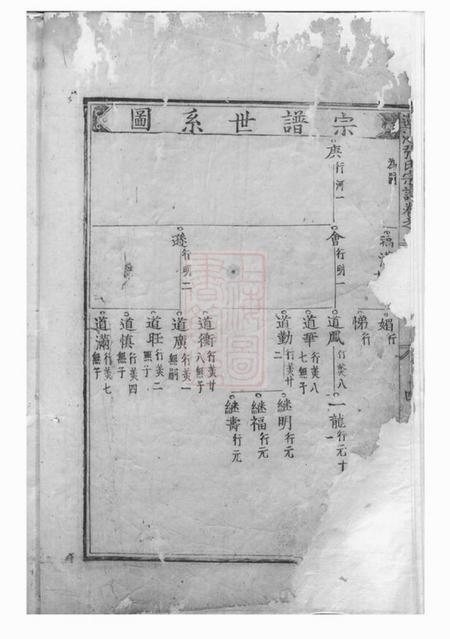 宗譜世系圖
張氏宗譜卷
為嗣
庚行河一
福
會行明一
遜行明二
娼行
悌行
道鳳行美八
道華行美八七無子
道勤行美廿二
道衡行美廿八無子
道廣行美一無嗣
道旺行美二無子
道慎行美四無子
道滿行美七無子
一龍行元十一
繼明行元
繼福行元
繼壽行元
上海圖書館